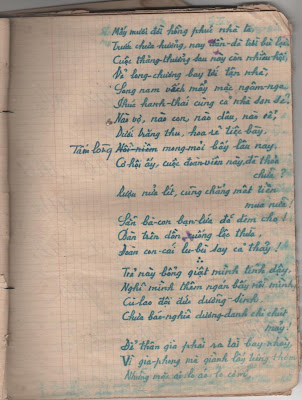 Mấy mươi đời hồng phúc nhà ta,
Trước chưa hưởng, nay dần-dà trời bù lại.
Cuộc thăng-thưởng sau này còn nhiều hội,
Vẻ long-chương bay tới tận nhà,
Song nam vếch mấy mặc ngâm-nga.
Phúc hanh-thái cùng cả nhà son sẻ.
Nào vợ, nào con, nào dâu, nào rể,
Dưới bóng thu, hoa rẽ tiệc bày.
Tấm lòng mong-mỏi bấy lâu nay,
Có hội ấy, cuộc đoàn-viên này đã thỏa
chưa?
Rượu nửa lít, cũng chẳng mất tiền
mua nữa!
Sẵn bà-con bạn-lứa để đem cho!
Bàn trên dồn xuống lạc thừa,
Đoàn con-cái lu-bù say cả thảy!
Trở này bỗng giật mình tỉnh dậy.
Nghĩ mình thêm ngán bấy nỗi mình
Cù-lao đội đức dưỡng-sinh,
Chưa báo-nghĩa dương-danh chi chút
mảy!
Để thân già phải sa lầy
Vì gia-phong mà gánh lấy
Những mặc áo